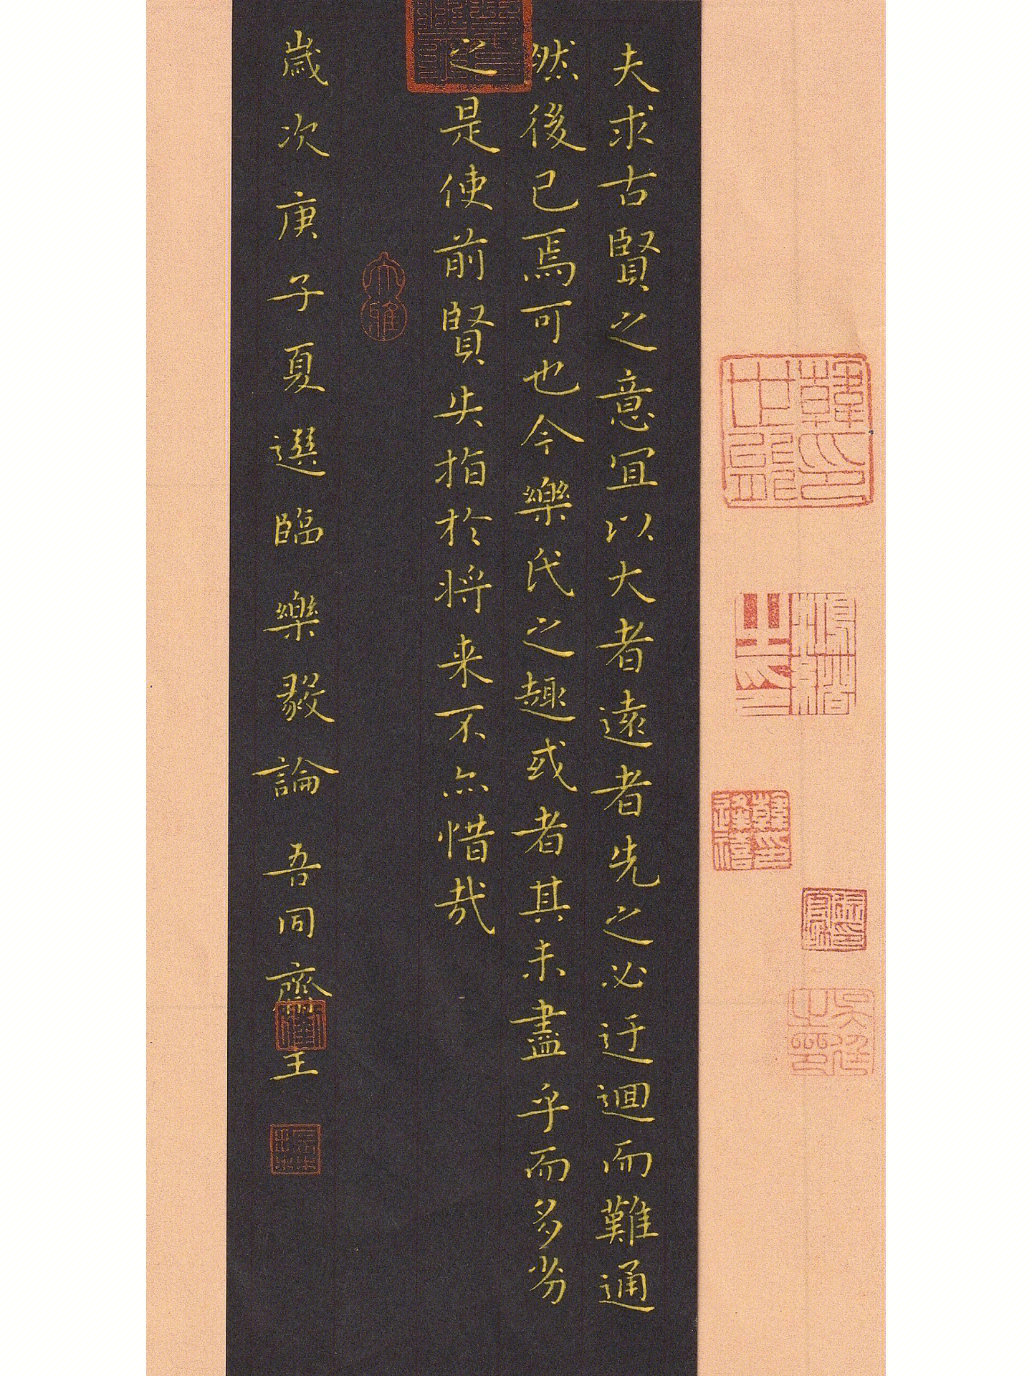 夫求古賢之意宜以大者遠者先之必迂迴而難通
然後已焉可也今樂氏之趣或者其未盡乎而多劣
之是使前賢失指於将来不亦惜哉
歲次庚子夏選臨樂毅論 吾同齋主
大雅
韓世能印
韓逢禧印
吳廷之印